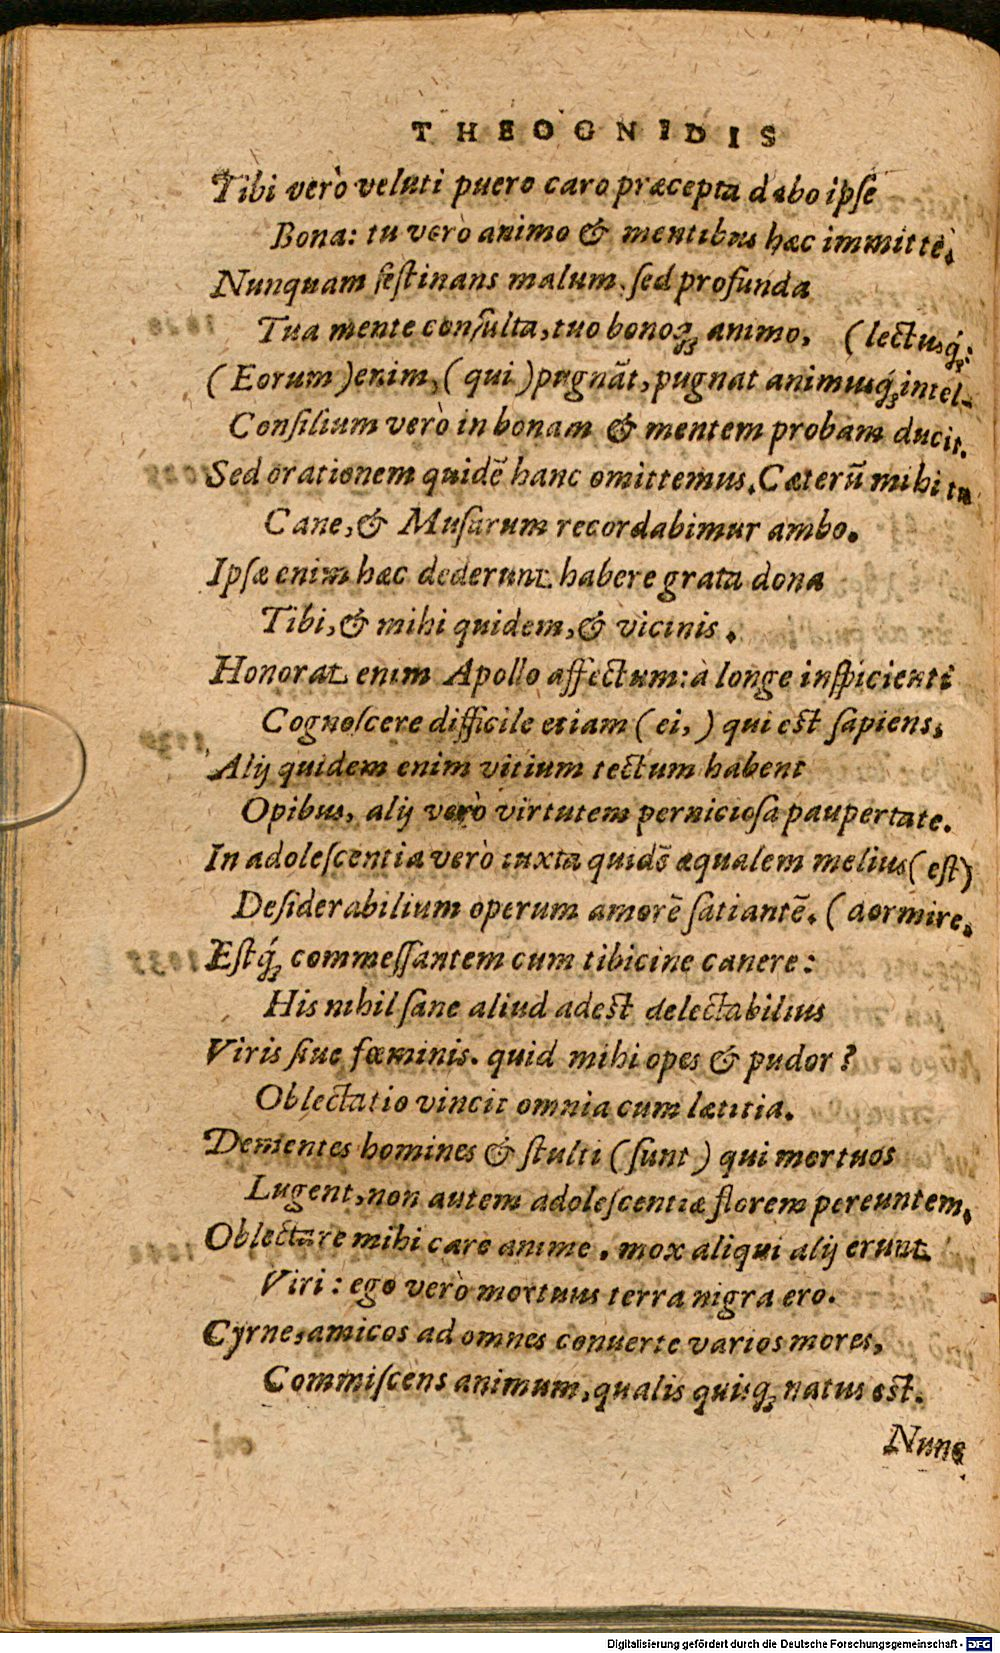 THEOGNIDIS
Tibi verò veluti puero caro præcepta dabo ipse
Bona: tu verò animo & mentibus hæc immitte.
Nunquam festinans malum. sed profunda
Tua mente consulta, tuo bonoq́ꝫ animo. (lectusq́ꝫ:
(Eorum) enim, (qui) pugnãt, pugnat animusq́ꝫ intel-
Consilium verò in bonam & mentem probam ducit.
Sed orationem quidẽ hanc omittemus. Cæterũ mihi tu
Cane, & Musarum recordabimur ambo.
Ipsæ enim hæc dederunt habere grata dona
Tibi, & mihi quidem, & vicinis.
Honorat enim Apollo affectum: à longe inspicienti
Cognoscere difficile etiam (ei,) qui est sapiens,
Alij quidem enim vitium tectum habent
Opibus, alij verò virtutem perniciosa paupertate.
In adolescentia verò iuxta quidẽ æqualem melius (est)
Desiderabilium operum amorẽ satiantẽ. (dormire,
Estq́ꝫ commessantem cum tibicine canere:
His nihil sane aliud adest delectabilius
Viris siue fœminis. quid mihi opes & pudor?
Oblectatio vincit omnia cum lætitia.
Dementes homines & stulti (sunt) qui mortuos
Lugent, non autem adolescentiæ florem pereuntem.
Oblectare mihi care anime. mox aliqui alij erunt
Viri: ego verò mortuus terra nigra ero.
Cyrne, amicos ad omnes conuerte varios mores,
Commiscens animum, qualis quisqꝫ natus est.
Nunc
Digitalisierung gefördert durch die Deutsche Forschungsgemeinschaft - DFG